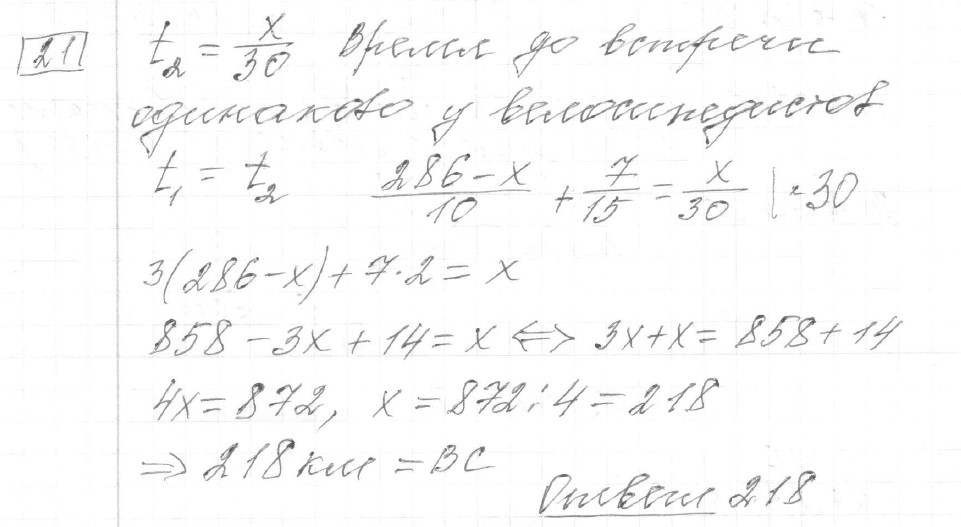 21 t₂ = x/30 Время до встречи
одинаково у велосипедистов
t₁ = t₂ (286-x)/10 + 7/15 = x/30 |·30
3(286-x)+7·2=x
858-3x+14=x <=> 3x+x=858+14
4x=872, x=872:4=218
=> 218 км = BC
Ответ 218